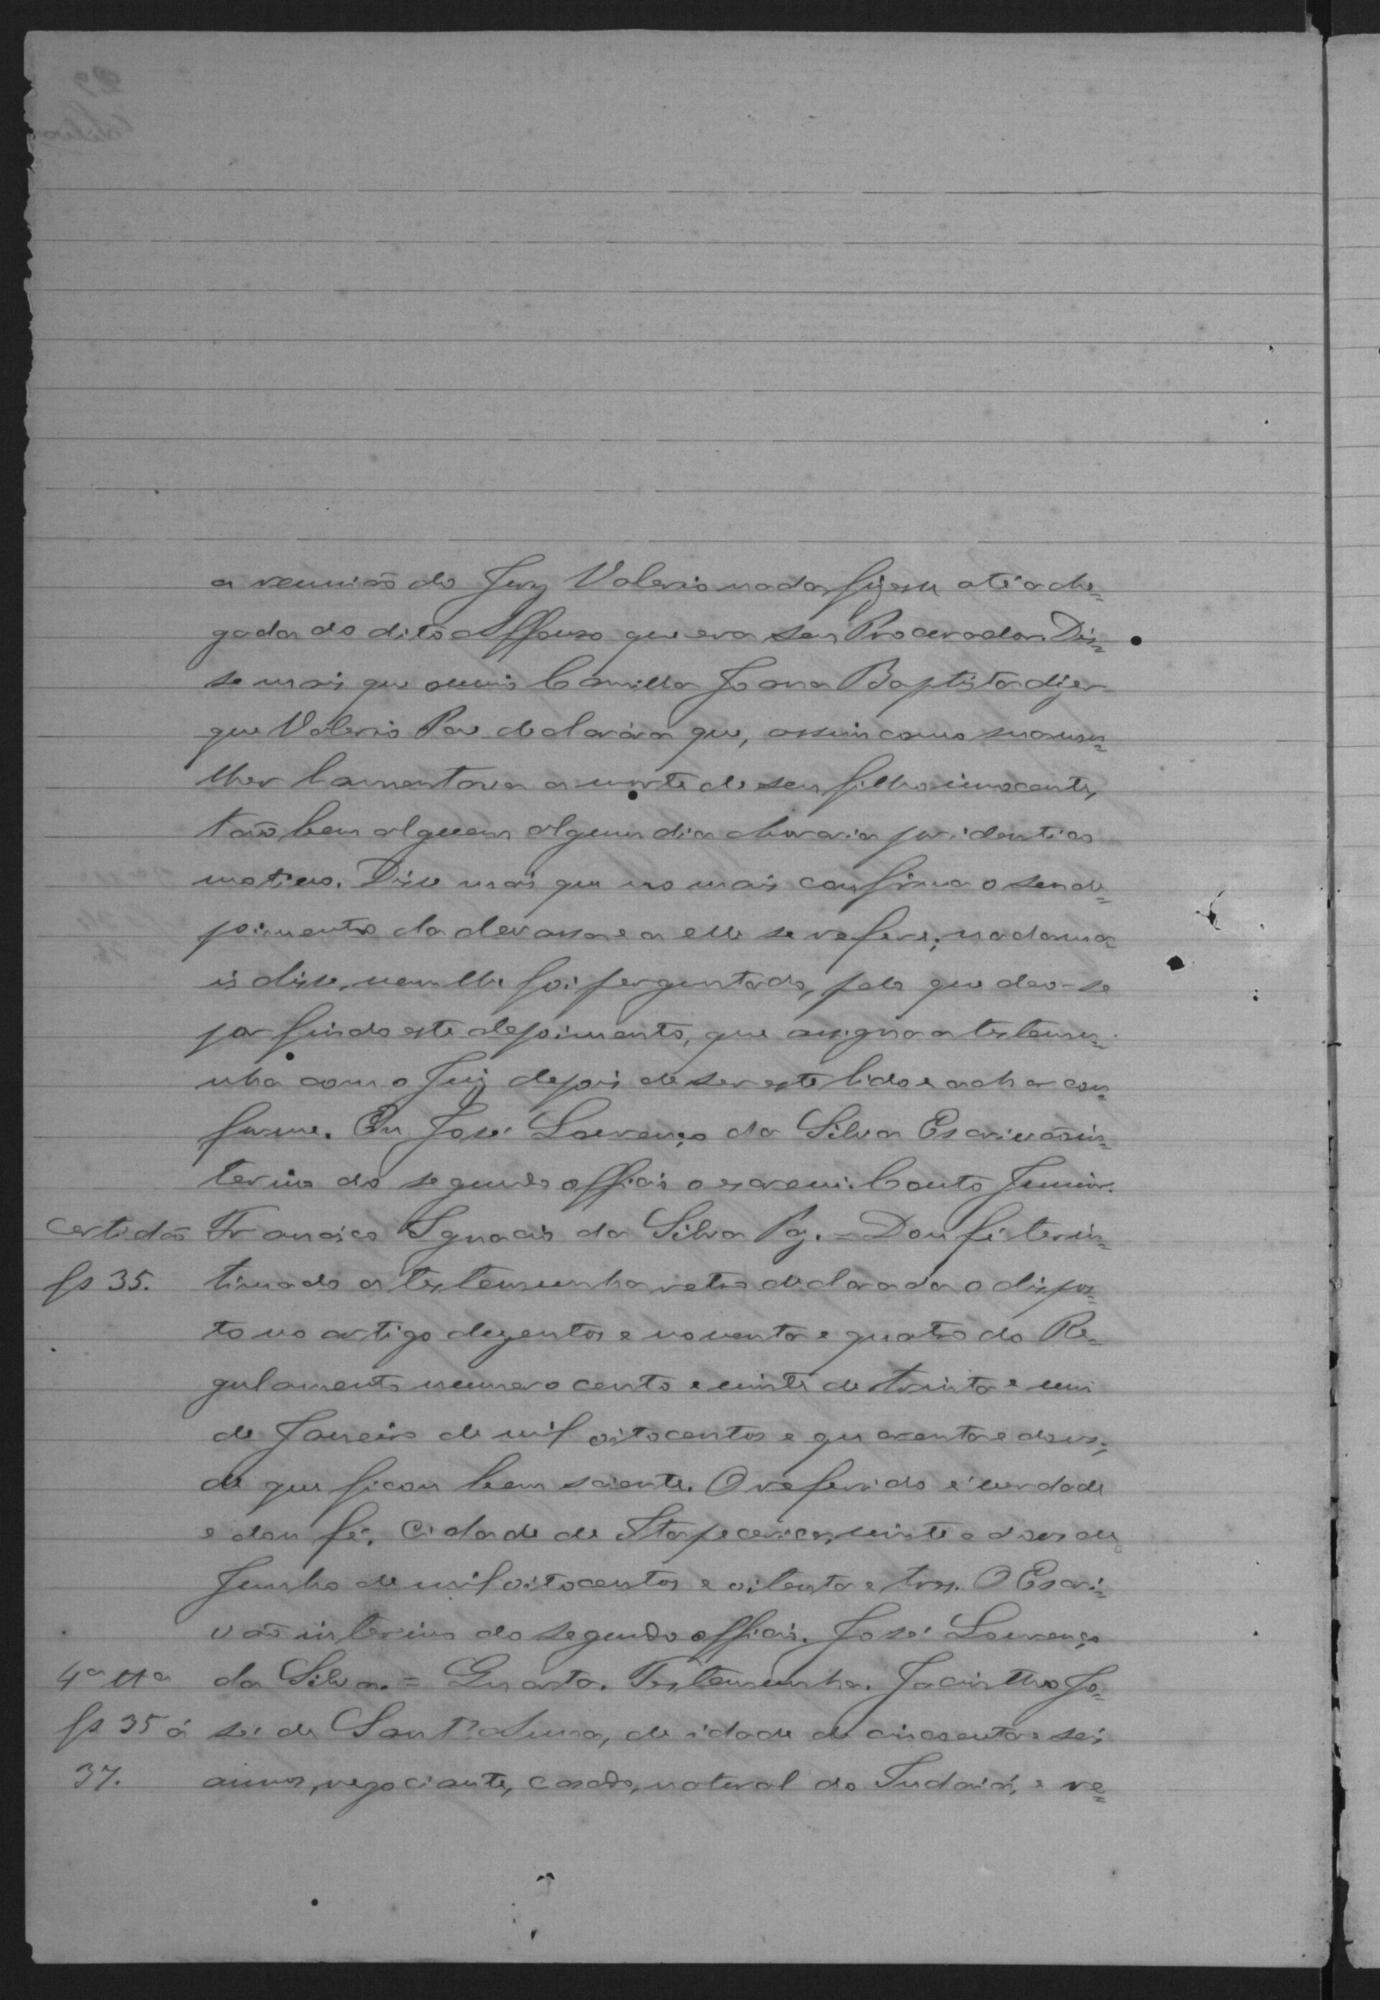 a reunião do Jury Valerio nada fizera até a che=
gada do dito Affonso que era seu Procurador. Dis=
se mais que ouvio Camilla Joana Baptista dizer
que Valerio Pae declarára que, assim como sua mu=
lher lamentava a morte de seu filho innocente,
tão bem alguem algum dia choraria por identico
motivo. Disse mais que no mais confirma o seu de=
poimento da devassa e a elle se refere; nada ma
is disse, nem lhe foi perguntado, pelo que deo-se
por findo este depoimento, que assigna a testemu=
nha com o Juiz depois de ser este lido e achar con=
forme. Eu José Lourenço da Silva Escrivão in=
terino do segundo officio o escrevi. Couto Junior.
Certidão Francisco Ignacio da Silva Paz. = Dou fé ter in=
fs 35. timado a testemunha retro declarada o dispos=
to no artigo duzentos e noventa e quatro do Re=
gulamento numero cento e vinte de trinta e um
de Janeiro de mil oitocentos e quarenta e dous;
de que ficou bem sciente. O referido é verdade
e dou fé. Cidade de Itapecerica, vinte e dous de
Junho de mil oitocentos e oitenta e tres. O Escri=
vão interino do segundo officio. José Lourenço
4ª ttª da Silva. = Quarta. Testemunha. Jacintho Jo=
fs 35 á sé de Sant'Anna, de idade de cincoenta e seis
37. annos, negociante, casado, natural do Indaiá, e re=